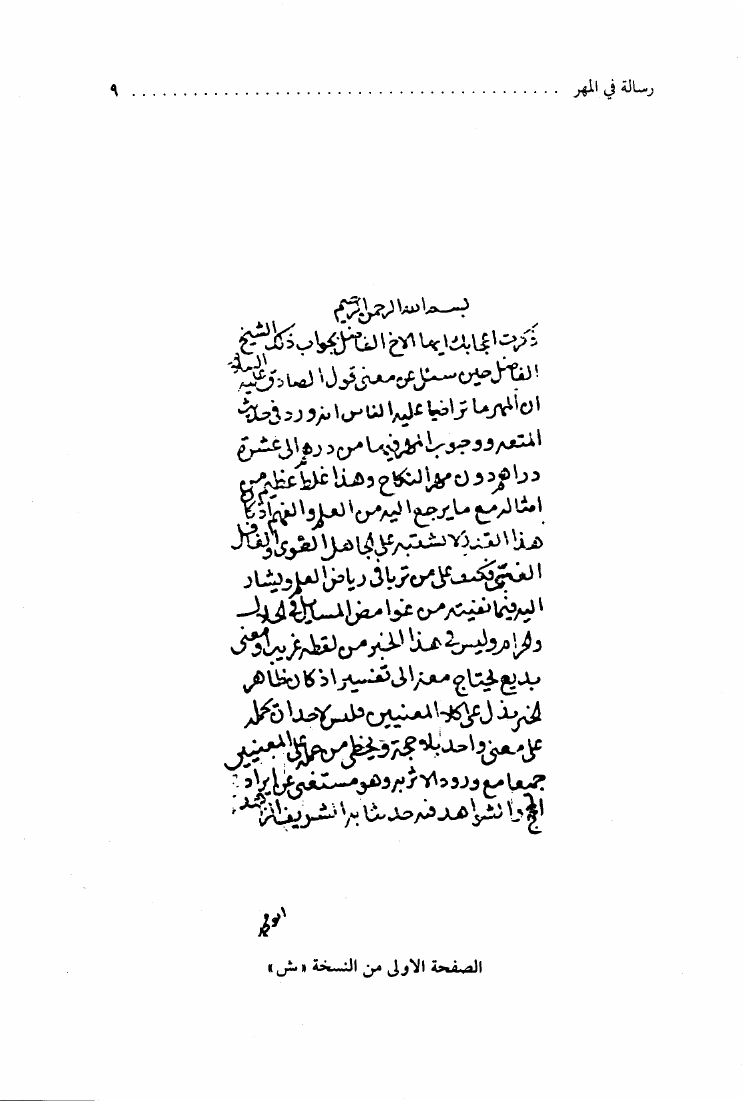 رسالة في المهر ........................................ ٩
بسم الله الرحمن الرحيم
ذكرت اعجابك ايها الاخ الفاضل بجواب ذلك الشيخ
الفاضل حين سئل عن معنى قول الصادق عليه السلام
ان المهر ما تراضيا عليه الناس انه ورد في حديث
المتعه ووجوب المهر فيها من درهم الى عشرة
دراهم دون مهر النكاح وهذا غلط عظيم من
امثاله مع ما يرجع اليه من العلم والفهم اذ كان
هذا القدر لا يشتبه على الجاهل
الغبي فكيف على من تربا في رياض العلم ويشار
اليه فيما من غوامض المسايل في الحلال
والحرام وليس في هذا الخبر من لفظه غريب او معنى
بديع يحتاج معه الى تفسير اذ كان ظاهر
الخبر يدل على كلا المعنيين فليس لاحد ان يحمله
على معنى واحد بلا حجة ويخطى من حمله على المعنيين
جميعا مع ورود الاثر به وهو مستغنى عن ايراد
الحجج والشواهد فيه حدثنا به الشريف الزاهد
ابو محمد
الصفحة الاولى من النسخة «ش»